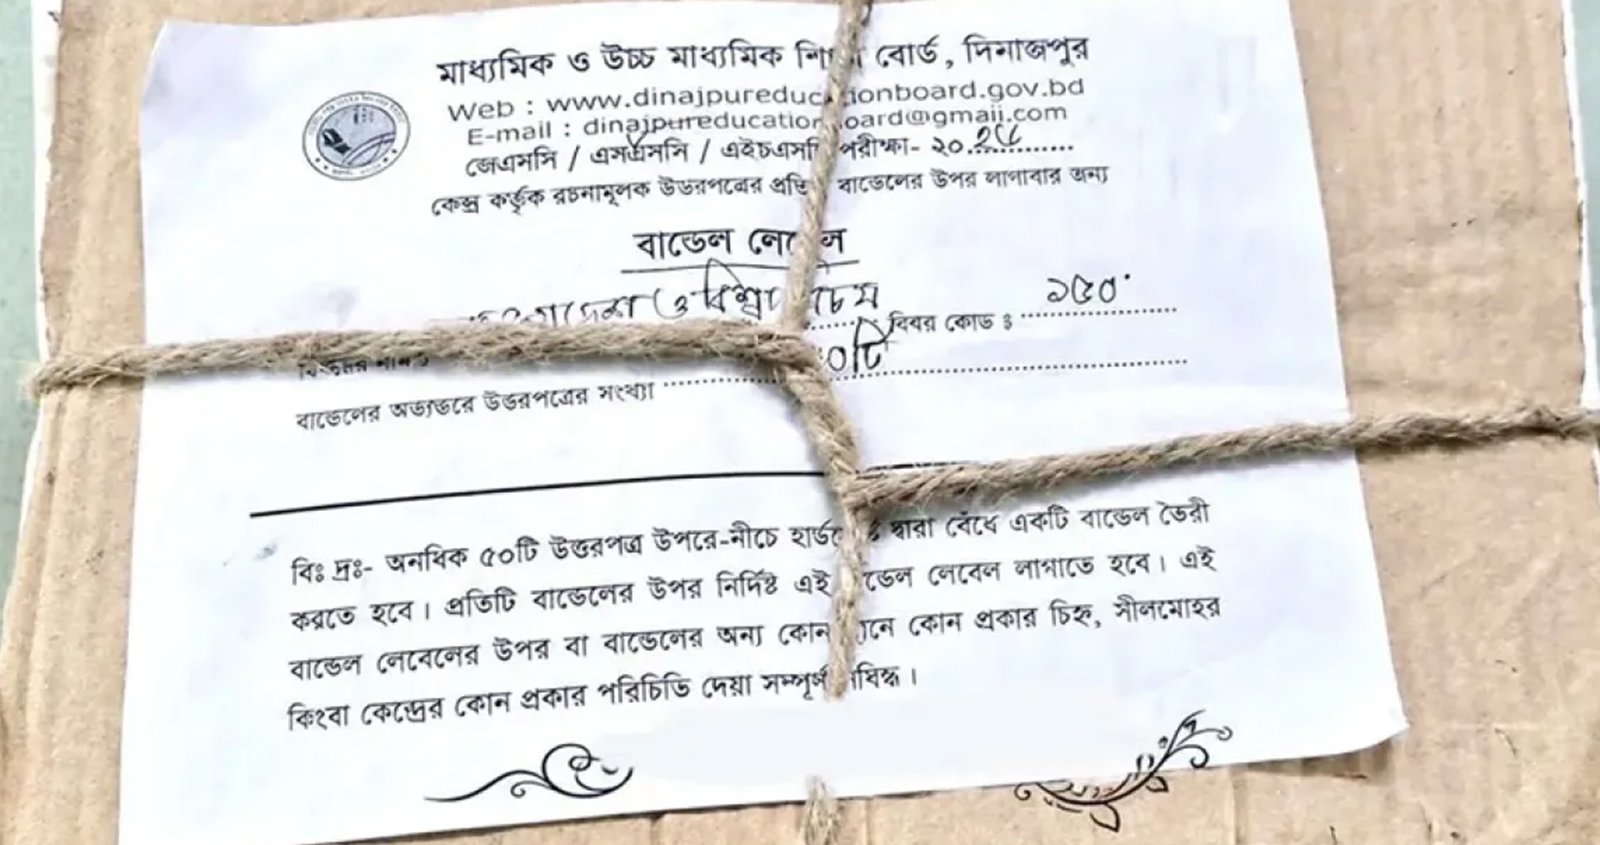 মাধ্যমিক ও উচ্চ মাধ্যমিক বোর্ড, দিনাজপুর
Web : www.dinajpureducationboard.gov.bd
E-mail : dinajpureducationboard@gmail.com
জেএসসি / এসএসসি / এইচএসসি পরীক্ষা- ২০.২৫
কেন্দ্র কর্তৃক রচনামূলক উত্তরপত্রের প্রতিটি বান্ডেলের উপর লাগাবার জন্য
বান্ডেল লেবেল
বাংলাদেশ ও বিশ্বপরিচয়
বিষয় কোড ঃ ১৫০
বান্ডেলের অভ্যন্তরে উত্তরপত্রের সংখ্যা
বিঃ দ্রঃ- অনধিক ৫০টি উত্তরপত্র উপরে-নীচে দ্বারা বেঁধে একটি বান্ডেল তৈরী
করতে হবে। প্রতিটি বান্ডেলের উপর নির্দিষ্ট এই বান্ডেল লেবেল লাগাতে হবে। এই
বান্ডেল লেবেলের উপর বা বান্ডেলের অন্য কোন কোন প্রকার চিহ্ন, সীলমোহর
কিংবা কেন্দ্রের কোন প্রকার পরিচিতি দেয়া সম্পূর্ণ নিষিদ্ধ।